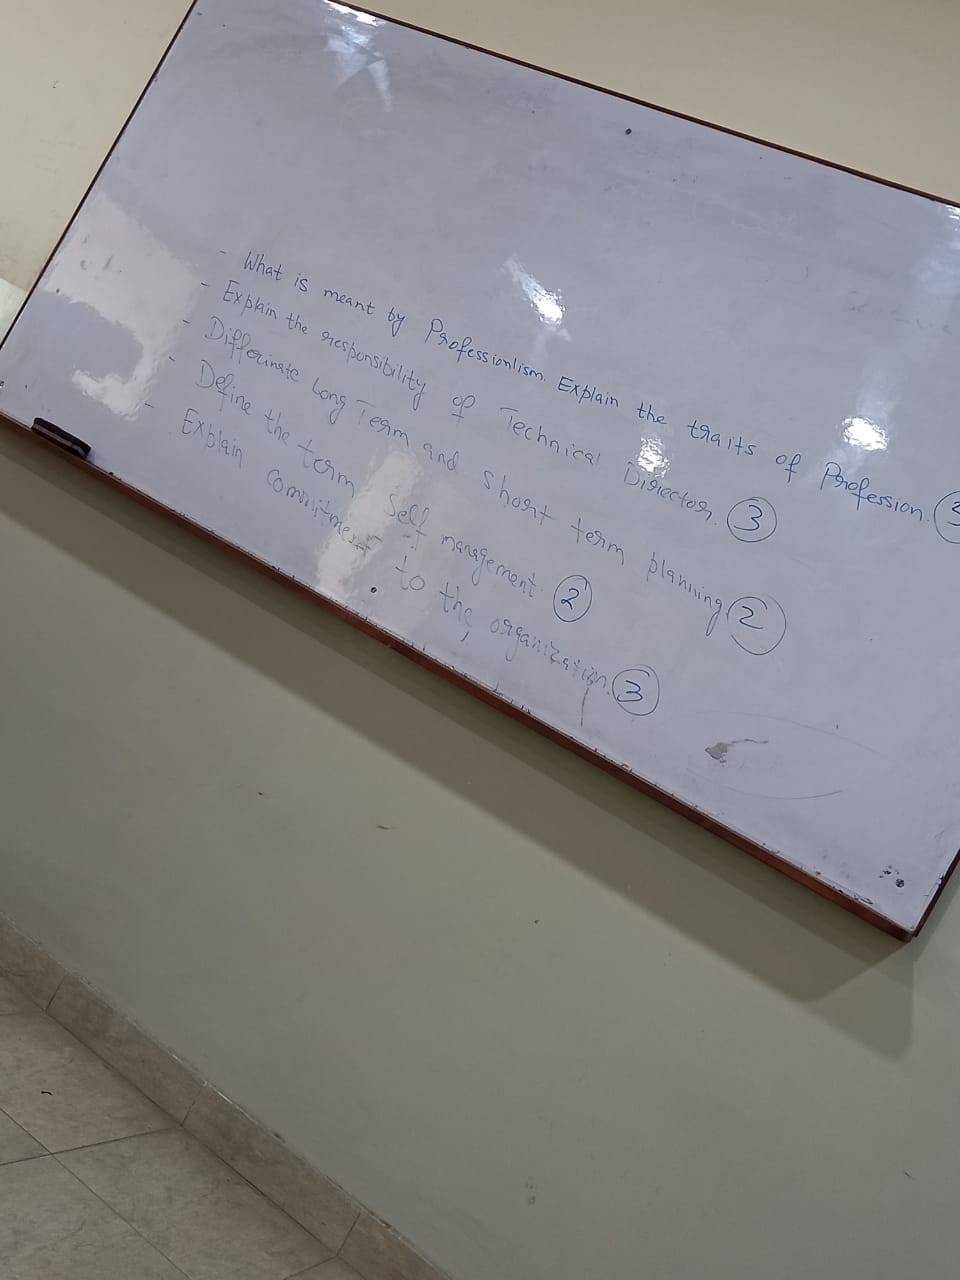 - What is meant by Professionlism. Explain the traits of Profession.
- Explain the responsibility of Technical Director. 3
- Differinate Long Term and short term planning. 2
- Define the term Self management. 2
- Explain commitment to the organization. 3